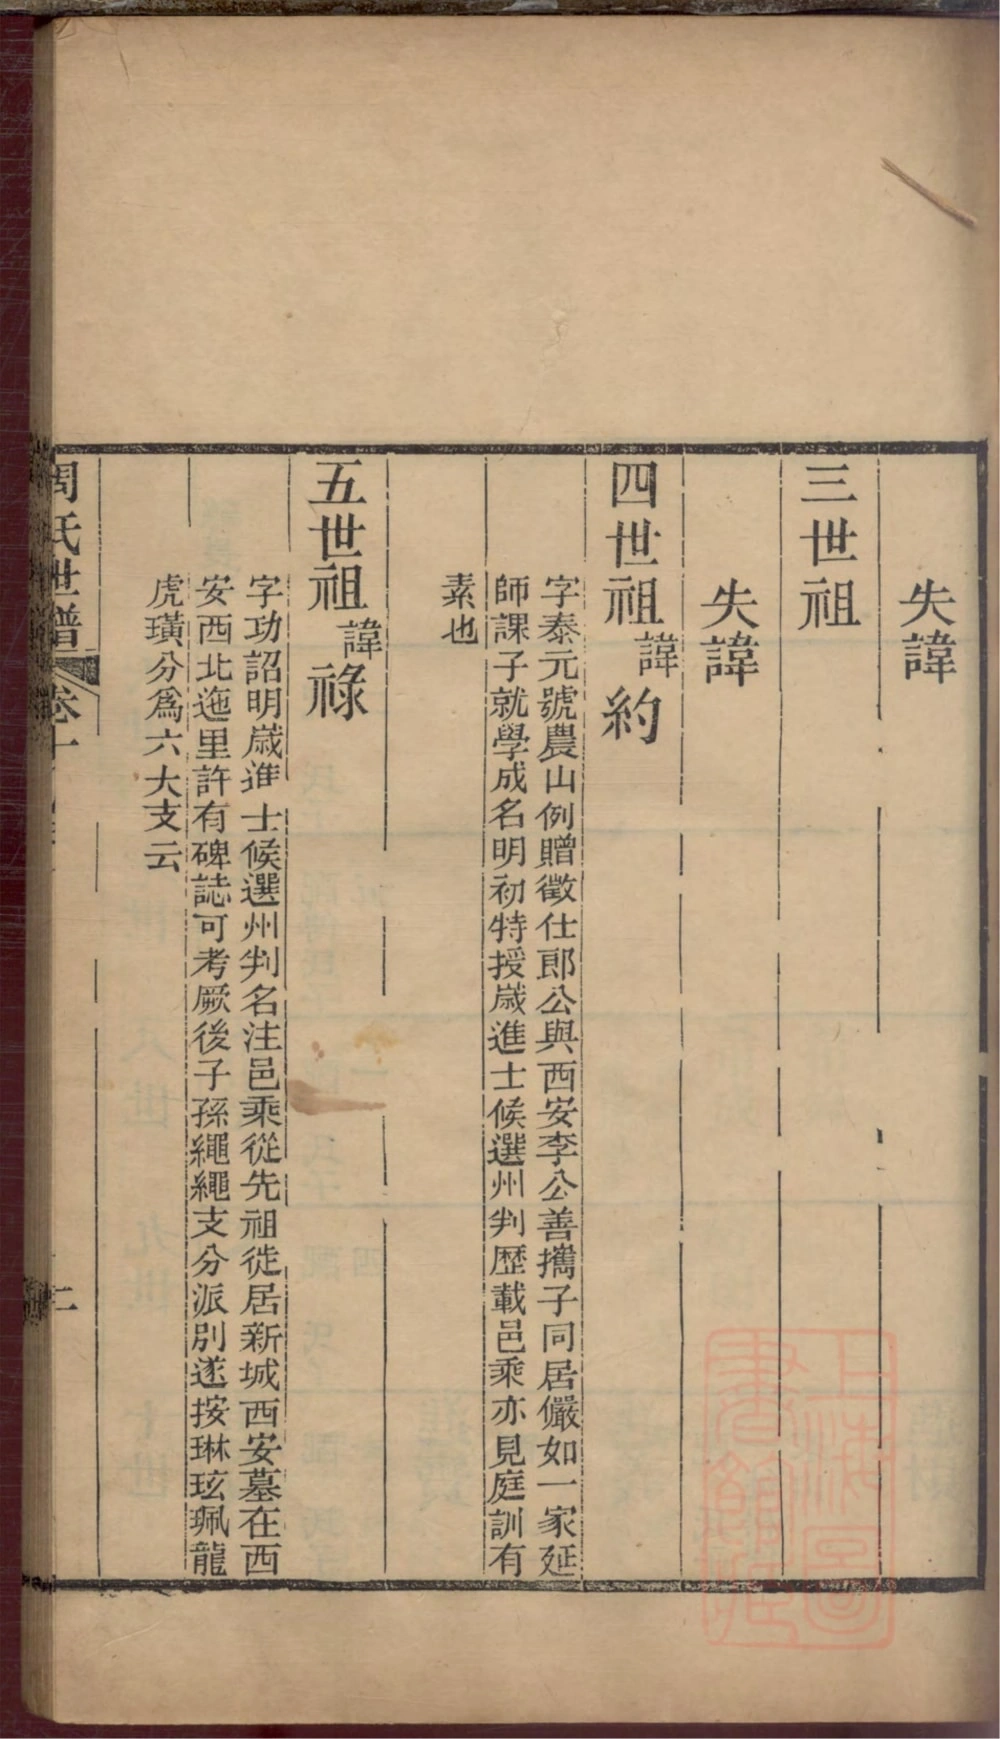 失諱
三世祖
失諱
四世祖諱約
字泰元號農山例贈徵仕郎公與西安李公善攜子同居儼如一家延
師課子就學成名明初特授歲進士候選州判歷載邑乘亦見庭訓有
素也
五世祖諱祿
字功詔明歲進士候選州判名注邑乘從先祖徙居新城西安墓在西
安西北迤里許有碑誌可考厥後子孫繩繩支分派別遂按琳玹珮龍
虎璜分為六大支云
周氏世譜 卷十
二
上海圖書館藏